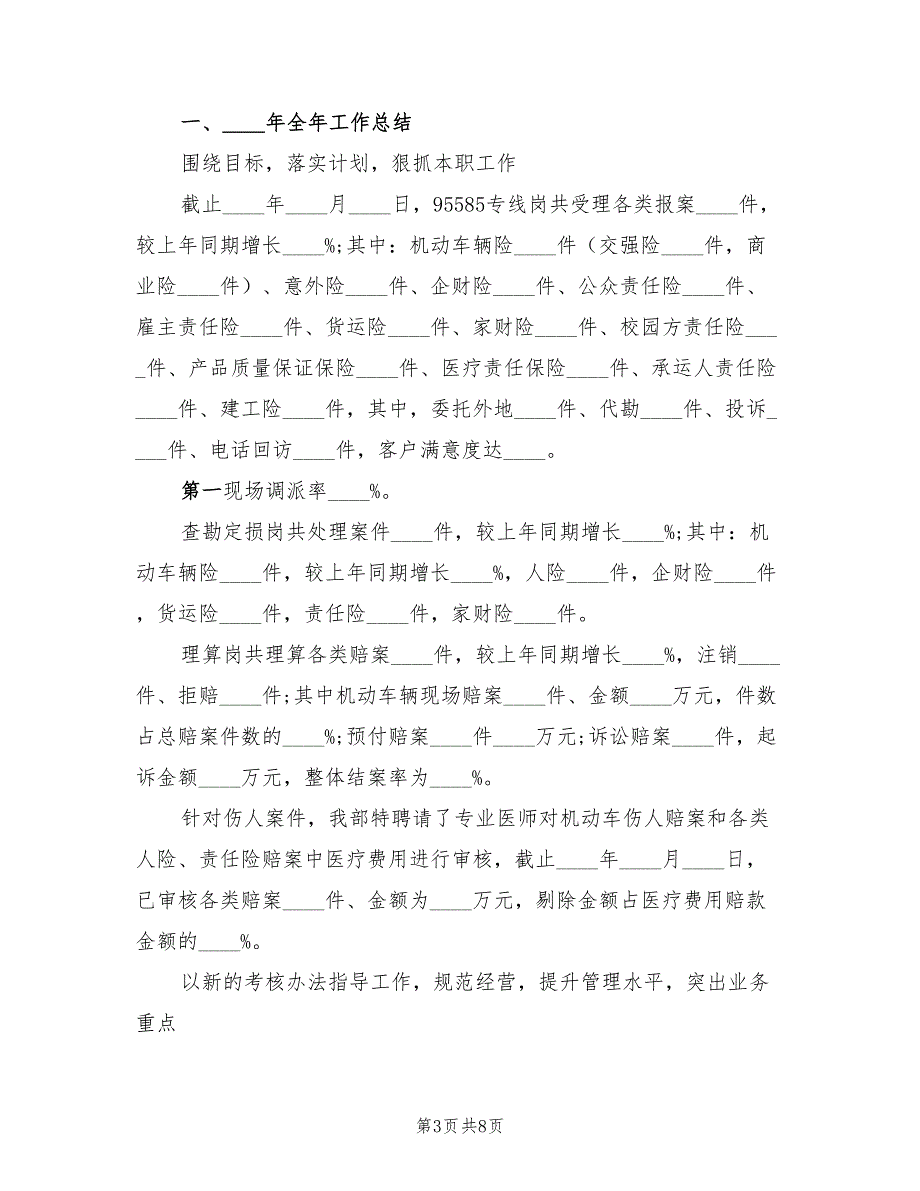 一、____年全年工作总结
围绕目标，落实计划，狠抓本职工作
截止____年____月____日，95585专线岗共受理各类报案____件，
较上年同期增长____%;其中：机动车辆险____件（交强险____件，商
业险____件）、意外险____件、企财险____件、公众责任险____件、
雇主责任险____件、货运险____件、家财险____件、校园方责任险___
_件、产品质量保证保险____件、医疗责任保险____件、承运人责任险
____件、建工险____件，其中，委托外地____件、代勘____件、投诉_
___件、电话回访____件，客户满意度达____。
第一现场调派率____%。
查勘定损岗共处理案件____件，较上年同期增长____%;其中：机
动车辆险____件，较上年同期增长____%，人险____件，企财险____件
，货运险____件，责任险____件，家财险____件。
理算岗共理算各类赔案____件，较上年同期增长____%，注销____
件、拒赔____件;其中机动车辆现场赔案____件、金额____万元，件数
占总赔案件数的____%;预付赔案____件____万元;诉讼赔案____件，起
诉金额____万元，整体结案率为____%。
针对伤人案件，我部特聘请了专业医师对机动车伤人赔案和各类
人险、责任险赔案中医疗费用进行审核，截止____年____月____日，
已审核各类赔案____件、金额为____万元，剔除金额占医疗费用赔款
金额的____%。
以新的考核办法指导工作，规范经营，提升管理水平，突出业务
重点
第3页 共8页